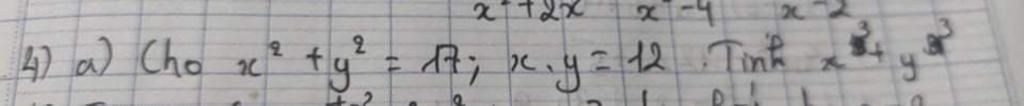 x²+2x x²-4 x-2
4) a) Cho x² + y² = 17; x.y = 12. Tính x³ + y³